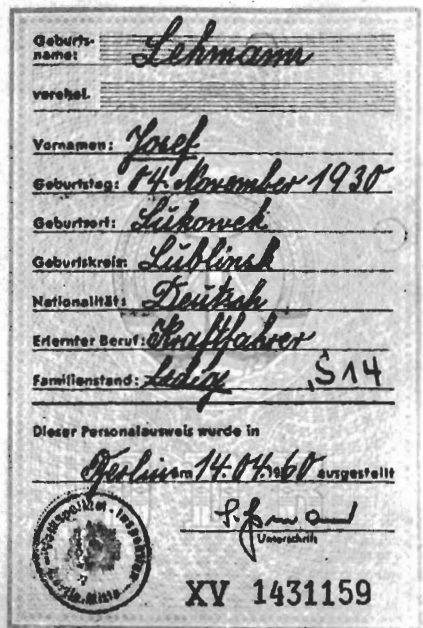 Geburts-
name: Lehmann
verehel.
Vornamen: Josef
Geburtstag: 04. November 1930
Geburtsort: Lukowek
Geburtskreis: Lublinsk
Nationalität: Deutsch
Erlernter Beruf: Kraftfahrer
Familienstand: Ledig S 14
Dieser Personalausweis wurde in
Berlin am 14.04.1960 ausgestellt
Unterschrift
XV 1431159